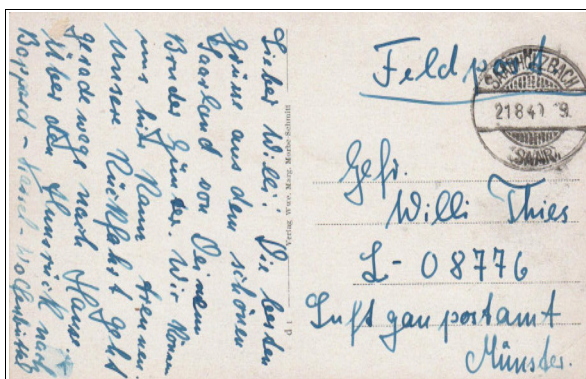 Lieber Willi! Die besten
Grüsse aus dem schönen
Saarland von Deinem
Bruder Günter. Wir können
uns nicht trennen.
Unsere Rückfahrt geht
gerade wegs nach Hause
über den Hunsrück nach
Boppard - Kassel -
d 1 Verlag Wwe. Marg. Schmitt
Feldpost
SAARHÖLZBACH
21.8.4
(SAAR)
Gefr.
Willi Thies
L - 08776
Luftgaupostamt
Münster.